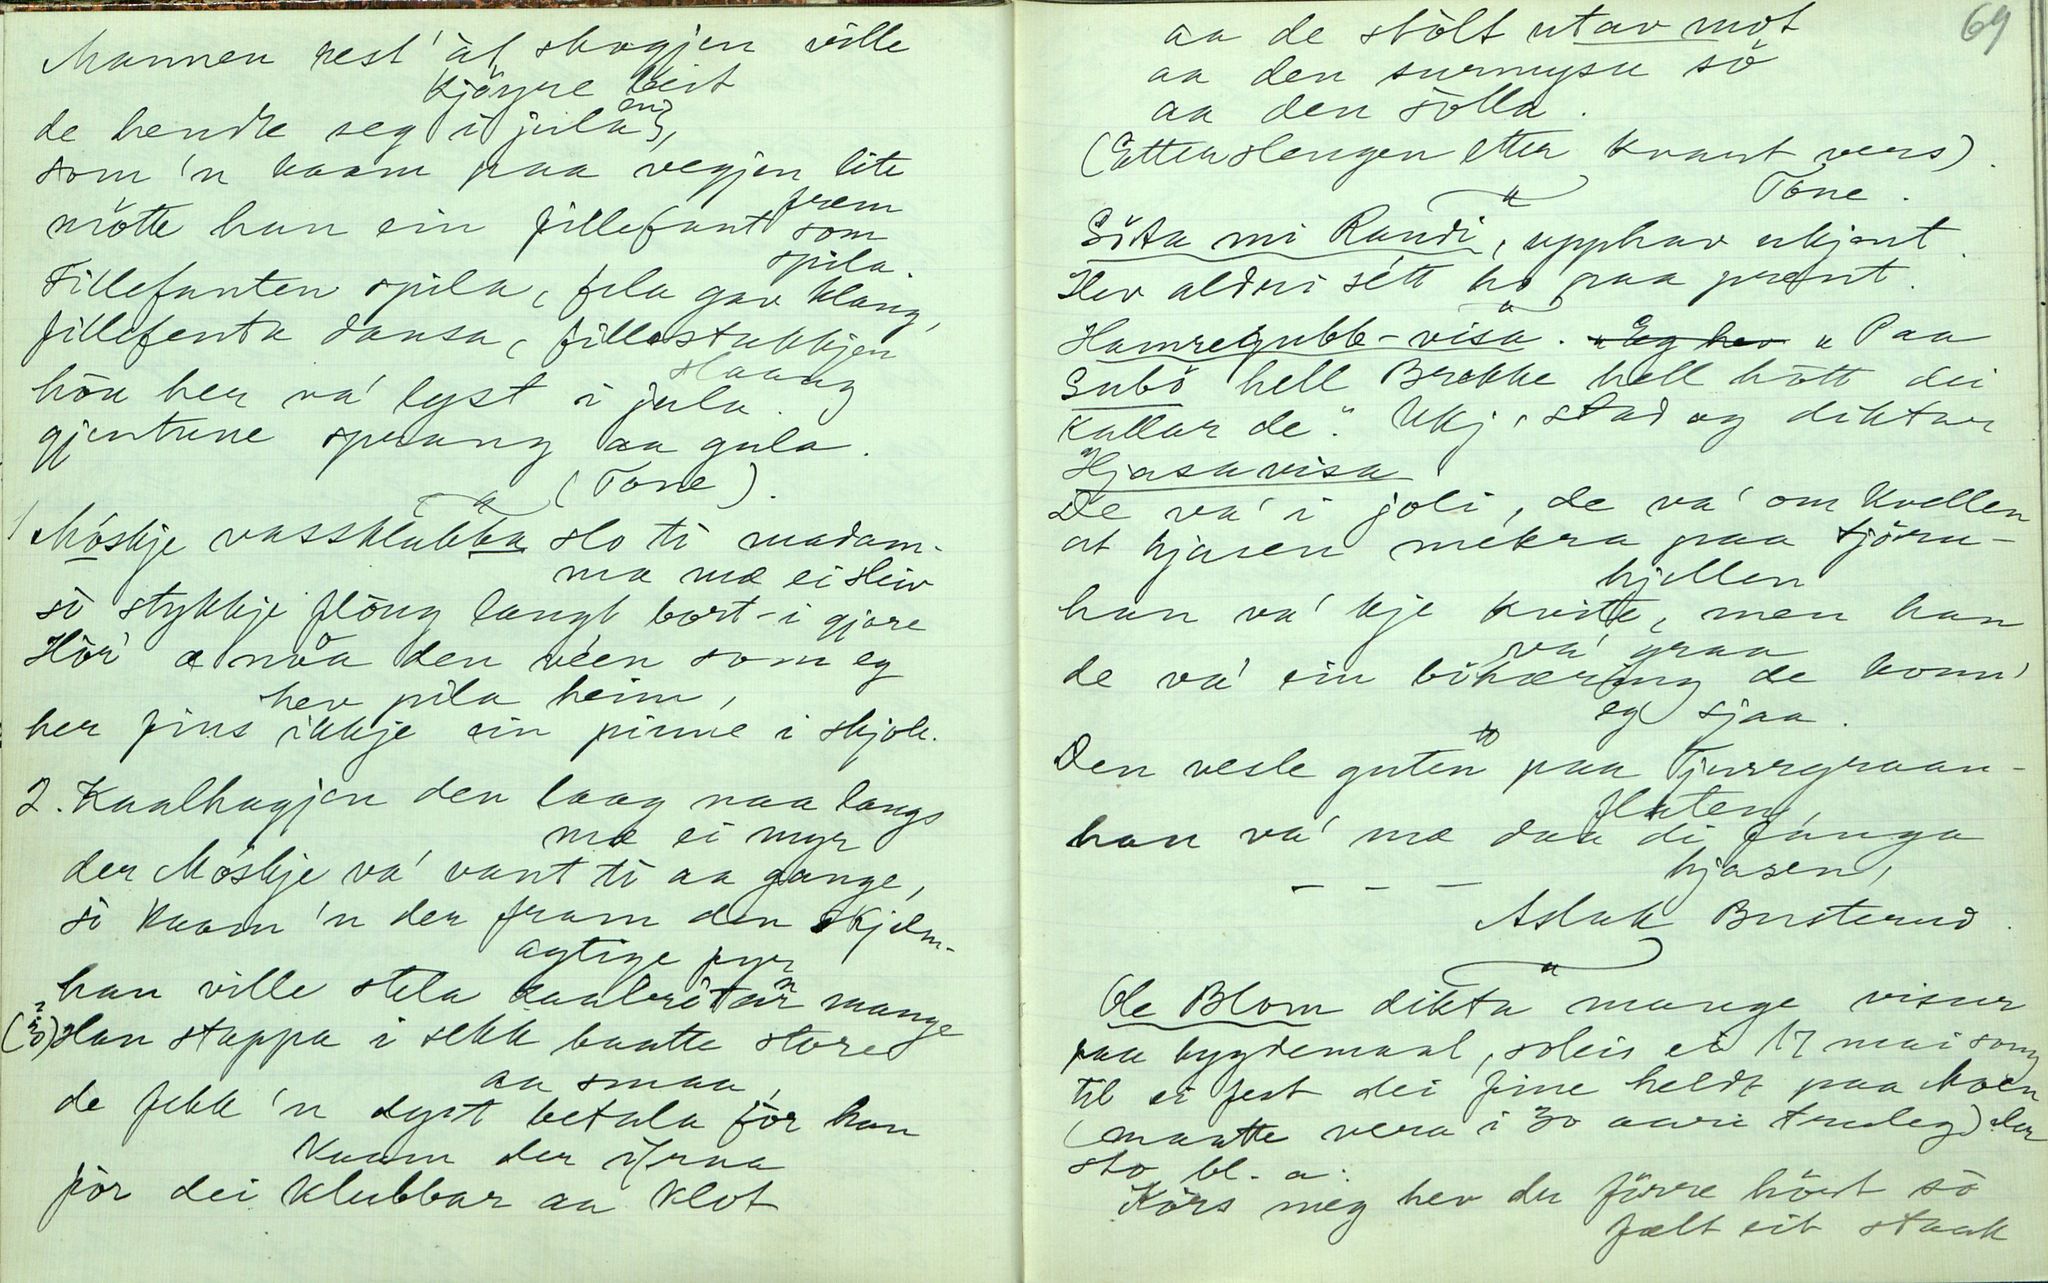 Mannen rest' åt skogjen ville
kjöyre beit
de hendte seg i julaen,
som 'n kaam paa vegjen lite
frem
mötte han ein fillefant som
spila.
Fillefanten spila, fela gav klang,
fillefenta dansa, fillestakkjen
slaang
hön her va' lyst i jula.
gjentune sprang aa gula.
(Tone).
1 Móskje vassklubba slo ti madam-
ma mæ ei skiv
sò stykkje flöug langt bort-i gjore
Hör' a nòa den veen som eg
hev pila heim,
her fins ikkje ein pinne i skjole.
2. Kaalhagjen den laag naa langs
mæ ei myr
der Móskje va' vant ti aa gange,
sò kaam 'n der fram den skjelm-
agtige fyr
han ville stela kaalrótan mange
(3) Han stappa i sekk baatte store
aa smaa,
de fekk 'n dyrt betala för han
kaam der ifraa
för dei klubbar aa klot
69
aa de stölt utav mot
aa den surmysu sò
aa den sölla.
(Etterslengen etter kvart vers).
Tone.
Söta mi Randi, upphav ukjent.
Hev aldri sétt ho paa prent.
Hamregubb-visa. „Eg hev „Paa
Subö hell Brekke hell hött dei
kallar de". Ukj. stad og diktar
Hjasavisa
De va' i joli, de va' om kvellen
at hjasen mekra paa tjöru-
hjellen
han va' kje kvite, men han
va' graa
de va' ein bihæring de konn'
eg sjaa.
Den vesle guten paa Tjuvrgraan-
flaten
han va' mæ daa di fánga
hjasen,
– – –
Aslak Busterud.
Ole Blom dikta mange visur
paa bygdemaal, soleis ei 17 mai song
til ei fest dei fine heldt paa Moen
(maatte vera i 30 aari truleg) der
sto bl. a:
Körs meg hev du förre höirt sò
fælt eit staak